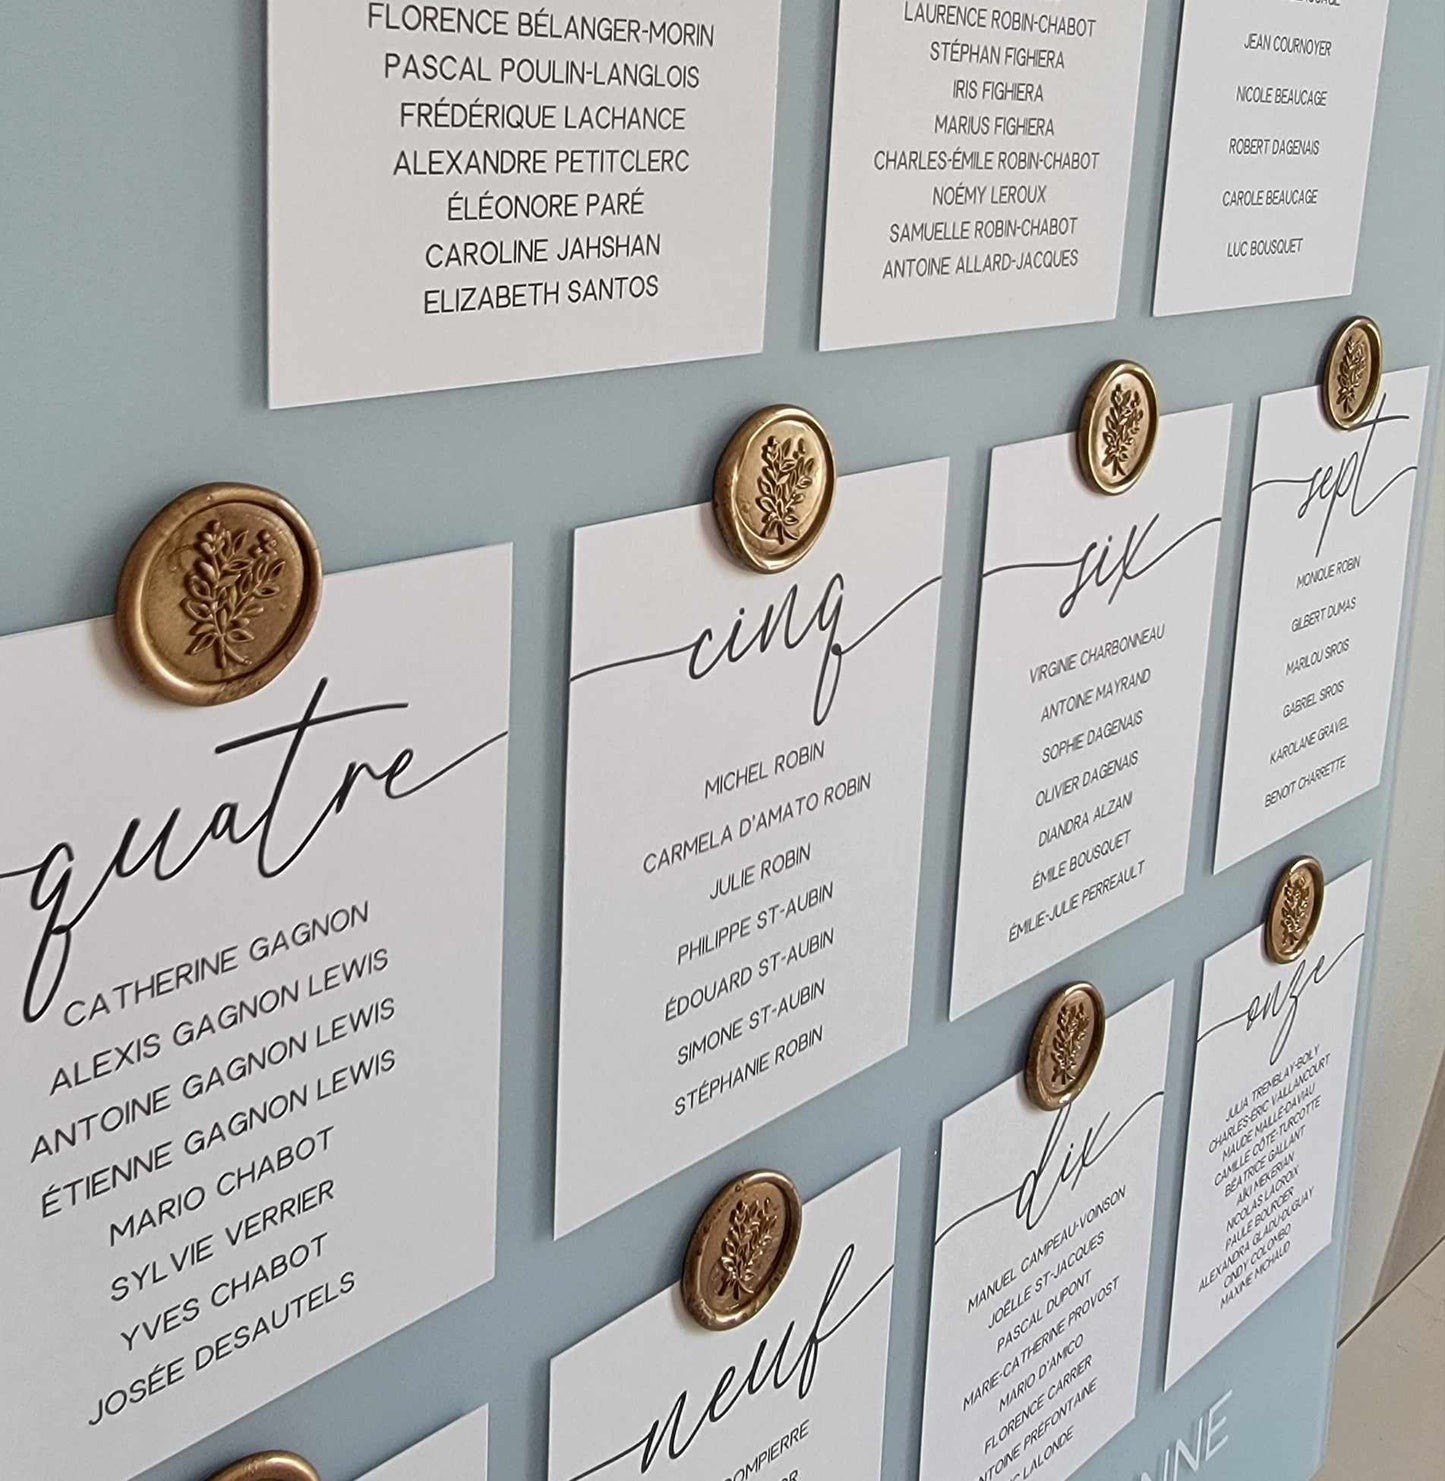 FLORENCE BÉLANGER-MORIN
PASCAL POULIN-LANGLOIS
FRÉDÉRIQUE LACHANCE
ALEXANDRE PETITCLERC
ÉLÉONORE PARÉ
CAROLINE JAHSHAN
ELIZABETH SANTOS
LAURENCE ROBIN-CHABOT
STÉPHAN FIGHIERA
IRIS FIGHIERA
MARIUS FIGHIERA
CHARLES-ÉMILE ROBIN-CHABOT
NOÉMY LEROUX
SAMUELLE ROBIN-CHABOT
ANTOINE ALLARD-JACQUES
JEAN COURNOYER
NICOLE BEAUCAGE
ROBERT DAGENAIS
CAROLE BEAUCAGE
LUC BOUSQUET
quatre
CATHERINE GAGNON
ALEXIS GAGNON LEWIS
ANTOINE GAGNON LEWIS
ÉTIENNE GAGNON LEWIS
MARIO CHABOT
SYLVIE VERRIER
YVES CHABOT
JOSÉE DESAUTELS
cinq
MICHEL ROBIN
CARMELA D'AMATO ROBIN
JULIE ROBIN
PHILIPPE ST-AUBIN
ÉDOUARD ST-AUBIN
SIMONE ST-AUBIN
STÉPHANIE ROBIN
six
VIRGINIE CHARBONNEAU
ANTOINE MAYRAND
SOPHIE DAGENAIS
OLIVIER DAGENAIS
DIANDRA ALZANI
ÉMILE BOUSQUET
ÉMILIE-JULIE PERREAULT
sept
MONIQUE ROBIN
GILBERT DUMAS
MARILOU SIROIS
GABRIEL SIROIS
KAROLANE GRAVEL
BENOIT CHARRETTE
neuf
dix
MANUEL CAMPEAU-VOINSON
JOËLLE ST-JACQUES
PASCAL DUPONT
MARIE-CATHERINE PROVOST
MARIO D'AMICO
FLORENCE CARRIER
PRÉFONTAINE
LALONDE
onze
JULIA TREMBLAY-BOLY
CHARLES-ÉRIC VAILLANCOURT
MAUDE MAILLÉ-DAVIAU
CAMILLE CÔTÉ-TURCOTTE
BÉATRICE GALLANT
AIKI MEKERIAN
NICOLAS LACROIX
PAULE BOURCIER
ALEXANDRA GLADU-DUGUAY
CINDY COLOMBO
MAXINE MICHAUD